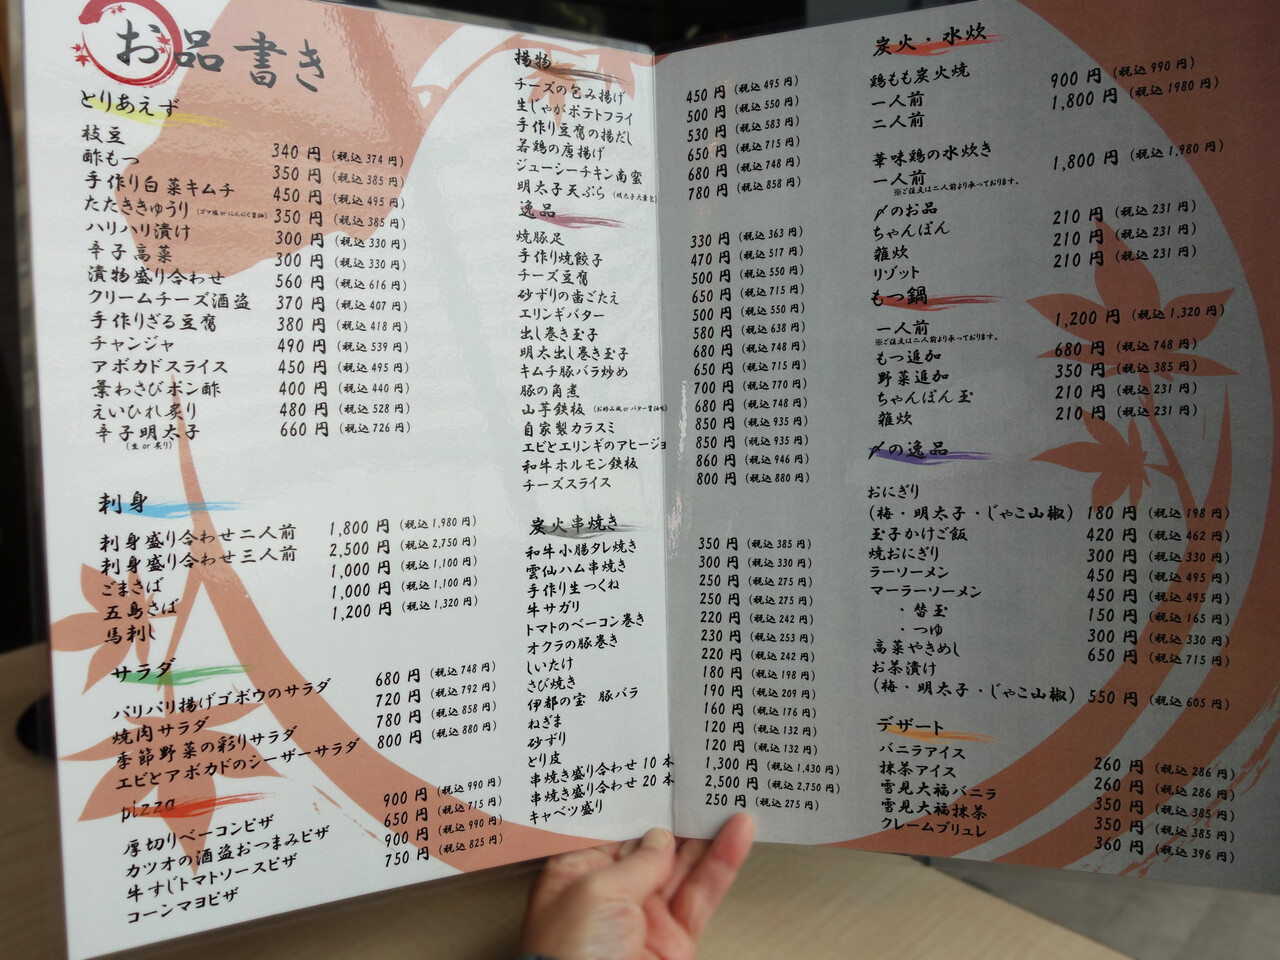 お品書き
とりあえず
枝豆 340 円 (税込 374 円)
酢もつ 350 円 (税込 385 円)
手作り白菜キムチ 450 円 (税込 495 円)
たたききゅうり (ゴマ塩 or にんにく醤油) 350 円 (税込 385 円)
ハリハリ漬け 300 円 (税込 330 円)
辛子高菜 300 円 (税込 330 円)
漬物盛り合わせ 560 円 (税込 616 円)
クリームチーズ酒盗 370 円 (税込 407 円)
手作りざる豆腐 380 円 (税込 418 円)
チャンジャ 490 円 (税込 539 円)
アボカドスライス 450 円 (税込 495 円)
葉わさびポン酢 400 円 (税込 440 円)
えいひれ炙り 480 円 (税込 528 円)
辛子明太子 660 円 (税込 726 円)
(生 or 炙り)
刺身
刺身盛り合わせ二人前 1,800 円 (税込 1,980 円)
刺身盛り合わせ三人前 2,500 円 (税込 2,750 円)
ごまさば 1,000 円 (税込 1,100 円)
五島さば 1,000 円 (税込 1,100 円)
馬刺し 1,200 円 (税込 1,320 円)
サラダ
パリパリ揚げゴボウのサラダ 680 円 (税込 748 円)
焼肉サラダ 720 円 (税込 792 円)
季節野菜の彩りサラダ 780 円 (税込 858 円)
エビとアボカドのシーザーサラダ 800 円 (税込 880 円)
pizza
厚切りベーコンピザ 900 円 (税込 990 円)
カツオの酒盗おつまみピザ 650 円 (税込 715 円)
牛すじトマトソースピザ 900 円 (税込 990 円)
コーンマヨピザ 750 円 (税込 825 円)
揚物
チーズの包み揚げ 450 円 (税込 495 円)
生じゃがポテトフライ 500 円 (税込 550 円)
手作り豆腐の揚だし 530 円 (税込 583 円)
若鶏の唐揚げ 650 円 (税込 715 円)
ジューシーチキン南蛮 680 円 (税込 748 円)
明太子天ぷら (明太子大葉と) 780 円 (税込 858 円)
逸品
焼豚足 330 円 (税込 363 円)
手作り焼餃子 470 円 (税込 517 円)
チーズ豆腐 500 円 (税込 550 円)
砂ずりの歯ごたえ 650 円 (税込 715 円)
エリンギバター 500 円 (税込 550 円)
出し巻き玉子 580 円 (税込 638 円)
明太出し巻き玉子 680 円 (税込 748 円)
キムチ豚バラ炒め 650 円 (税込 715 円)
豚の角煮 700 円 (税込 770 円)
山芋鉄板 (お好み風 or バター醤油味) 680 円 (税込 748 円)
自家製カラスミ 850 円 (税込 935 円)
エビとエリンギのアヒージョ 850 円 (税込 935 円)
和牛ホルモン鉄板 860 円 (税込 946 円)
チーズスライス 800 円 (税込 880 円)
炭火串焼き
和牛小腸タレ焼き 350 円 (税込 385 円)
雲仙ハム串焼き 300 円 (税込 330 円)
手作り生つくね 250 円 (税込 275 円)
牛サガリ 250 円 (税込 275 円)
トマトのベーコン巻き 220 円 (税込 242 円)
オクラの豚巻き 230 円 (税込 253 円)
しいたけ 220 円 (税込 242 円)
さび焼き 180 円 (税込 198 円)
伊都の宝 豚バラ 190 円 (税込 209 円)
ねぎま 160 円 (税込 176 円)
砂ずり 120 円 (税込 132 円)
とり皮 120 円 (税込 132 円)
串焼き盛り合わせ 10 本 1,300 円 (税込 1,430 円)
串焼き盛り合わせ 20 本 2,500 円 (税込 2,750 円)
キャベツ盛り 250 円 (税込 275 円)
炭火・水炊
鶏もも炭火焼
一人前 900 円 (税込 990 円)
二人前 1,800 円 (税込 1980 円)
華味鶏の水炊き
一人前 1,800 円 (税込 1,980 円)
※ご注文は二人前より承っております。
〆のお品
ちゃんぽん 210 円 (税込 231 円)
雑炊 210 円 (税込 231 円)
リゾット 210 円 (税込 231 円)
もつ鍋
一人前 1,200 円 (税込 1,320 円)
※ご注文は二人前より承っております。
もつ追加 680 円 (税込 748 円)
野菜追加 350 円 (税込 385 円)
ちゃんぽん玉 210 円 (税込 231 円)
雑炊 210 円 (税込 231 円)
〆の逸品
おにぎり
(梅・明太子・じゃこ山椒) 180 円 (税込 198 円)
玉子かけご飯 420 円 (税込 462 円)
焼おにぎり 300 円 (税込 330 円)
ラーソーメン 450 円 (税込 495 円)
マーラーソーメン 450 円 (税込 495 円)
・替玉 150 円 (税込 165 円)
・つゆ 300 円 (税込 330 円)
高菜やきめし 650 円 (税込 715 円)
お茶漬け
(梅・明太子・じゃこ山椒) 550 円 (税込 605 円)
デザート
バニラアイス 260 円 (税込 286 円)
抹茶アイス 260 円 (税込 286 円)
雪見大福バニラ 350 円 (税込 385 円)
雪見大福抹茶 350 円 (税込 385 円)
クレームブリュレ 360 円 (税込 396 円)